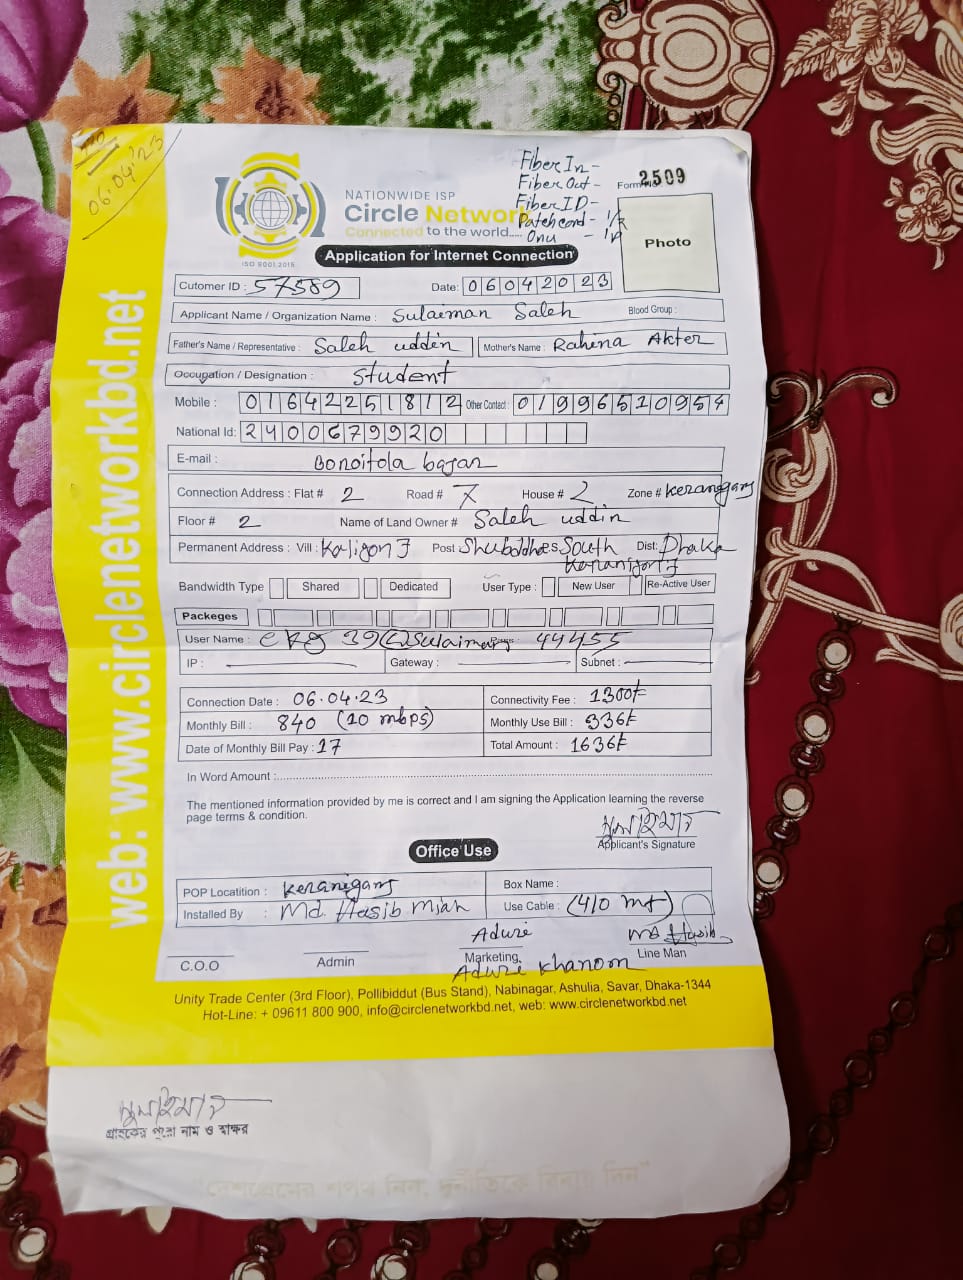 06.04.23
NATIONWIDE ISP
Circle Network
Connected to the world.....
ISO 9001:2015
Fiber In -
Fiber Out -
Fiber ID -
Patch cord - 1/R
Onu - 1/P
Form No 2509
Photo
Application for Internet Connection
Cutomer ID : 57589 Date: 06042023
Applicant Name / Organization Name : Sulaiman Saleh Blood Group :
Father's Name / Representative : Saleh uddin Mother's Name : Rahina Akter
Occupation / Designation : Student
Mobile : 01642251812 Other Contact : 01996510954
National Id: 2400679920
E-mail : Bonoitola bazar
Connection Address : Flat # 2 Road # 7 House # 2 Zone # Keranigang
Floor # 2 Name of Land Owner # Saleh uddin
Permanent Address : Vill : Kaligonj Post Shubddha P.S South Keranigonj Dist: Dhaka
Bandwidth Type Shared Dedicated User Type : New User Re-Active User
Packeges
User Name : 39@Sulaiman Pass: 44455
IP : Gateway : Subnet :
Connection Date : 06.04.23 Connectivity Fee : 1300/-
Monthly Bill : 840 (10 mbps) Monthly Use Bill : 336/-
Date of Monthly Bill Pay : 17 Total Amount : 1636/-
In Word Amount :
The mentioned information provided by me is correct and I am signing the Application learning the reverse
page terms & condition.
সুলাইমান
Applicant's Signature
Office Use
POP Locatition : Keranigang Box Name :
Installed By : Md. Hasib Miah Use Cable : (410 mt)
Adure Md Hasib
C.O.O Admin Marketing Line Man
Adure Khanom
Unity Trade Center (3rd Floor), Pollibiddut (Bus Stand), Nabinagar, Ashulia, Savar, Dhaka-1344
Hot-Line: + 09611 800 900, info@circlenetworkbd.net, web: www.circlenetworkbd.net
web: www.circlenetworkbd.net
সুলাইমান
গ্রাহকের পুরো নাম ও স্বাক্ষর
"দেশপ্রেমের শপথ নিন, দুর্নীতিকে বিদায় দিন"